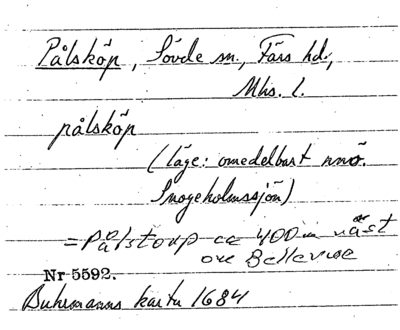 Pålsköp, Sövde sn, Färs hd.,
Mhs. l.
pålsköp
(läge: omedelbart nnö.
Snogeholmssjön)
= Pålstorp ca 400 m
om Bellevue
Nr 5592.
Buhrmanns karta 1684